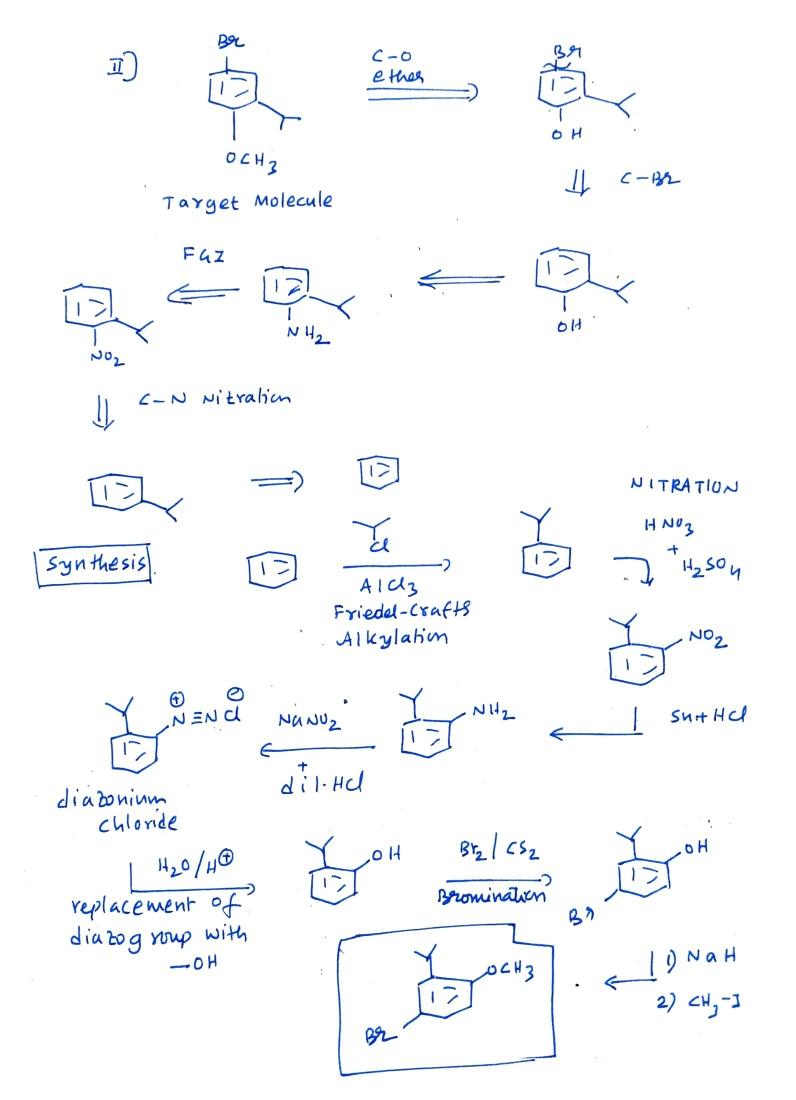 II)
Br
OCH3
Target Molecule
C-O
ether
Br
OH
C-Br
OH
NH2
FGI
NO2
C-N Nitration
Synthesis
Cl
AlCl3
Friedel-Crafts
Alkylation
NITRATION
HNO3
+
H2SO4
NO2
Sn+HCl
NH2
NaNO2
+
dil.HCl
⊕ ⊖
N≡NCl
diazonium
chloride
H2O/H⊕
replacement of
diazogroup with
-OH
OH
Br2/CS2
Bromination
OH
Br
1) NaH
2) CH3-I
OCH3
Br